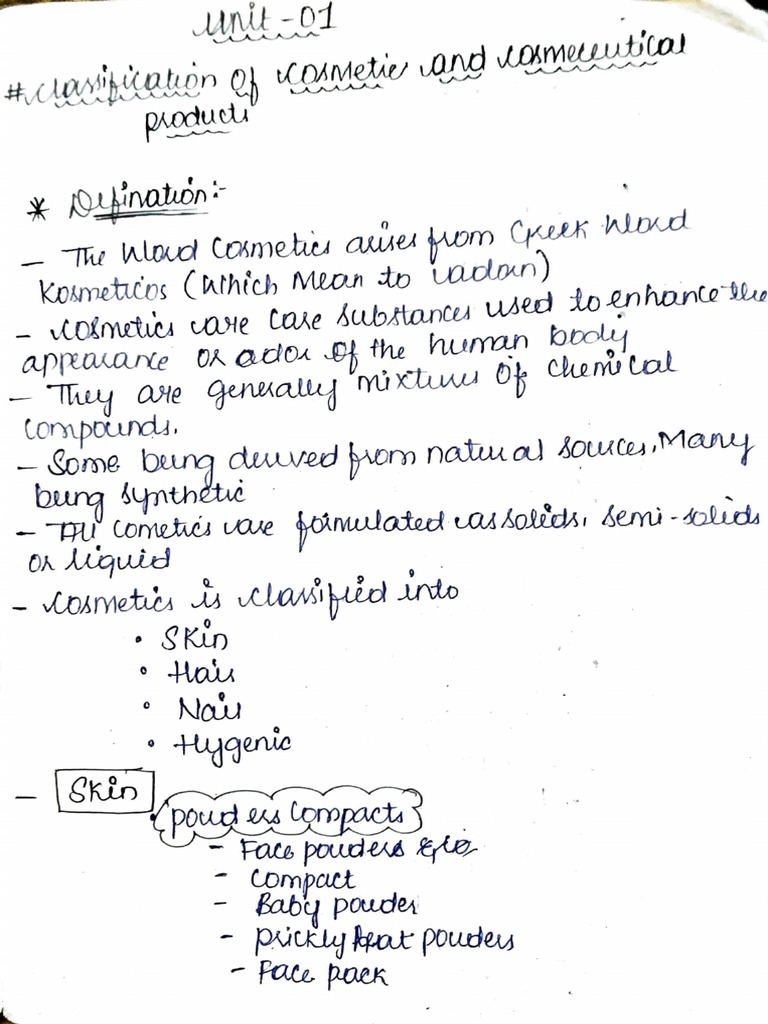 Unit-01
# Classification of cosmetic and cosmeceutical
products
* Defination:-
- The Word Cosmetics arises from Greek Word
Kosmeticos (Which Mean to adorn)
- Cosmetics are care substances used to enhance the
appearance or odor of the human body
- They are generally mixtures of chemical
compounds.
- Some being derived from natural sources, Many
being synthetic
- All cometics are formulated as solids, semi-solids
or liquid
- Cosmetics is classified into
• Skin
• Hair
• Nail
• Hygenic
- Skin
• powders compacts
- Face powders
- compact
- Baby powder
- prickly heat powders
- Face pack